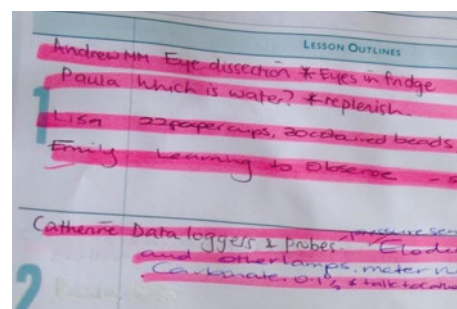 LESSON OUTLINES
Andrew MM Eye dissection * Eyes in fridge
Paula Which is water? * replenish.
1
Lisa 22 paper cups, 30 coloured beads
Emily Learning to Observe -
Catherine Data loggers & probes. pressure sen
Elode
and other lamps, meter
2
Carbonate 0.1% * talk to